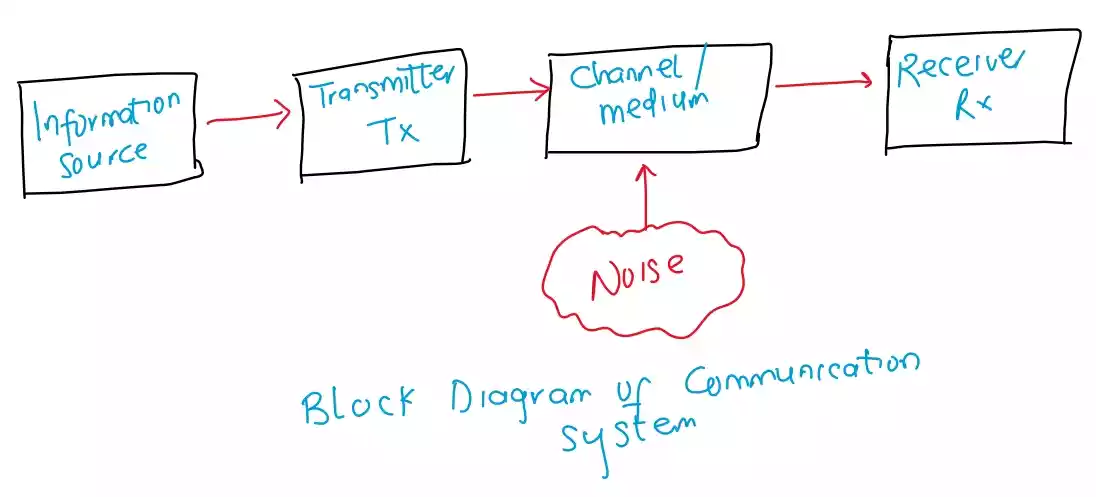 Information
source
Transmitter
Tx
Channel /
medium
Receiver
Rx
Noise
Block Diagram of Communication
system